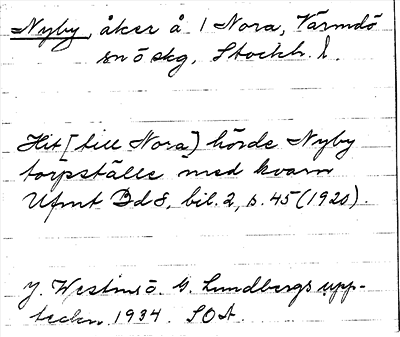 Nyby, åker å 1 Nora, Värmdö
sn o skg, Stockh. l.
Hit [till Nora] hörde Nyby
torpställe med kvarn
Ufmt Bd 8, bil. 2, s. 45 (1920).
J. Westins o. G. Lundbergs upp-
teckn. 1934. SOA.